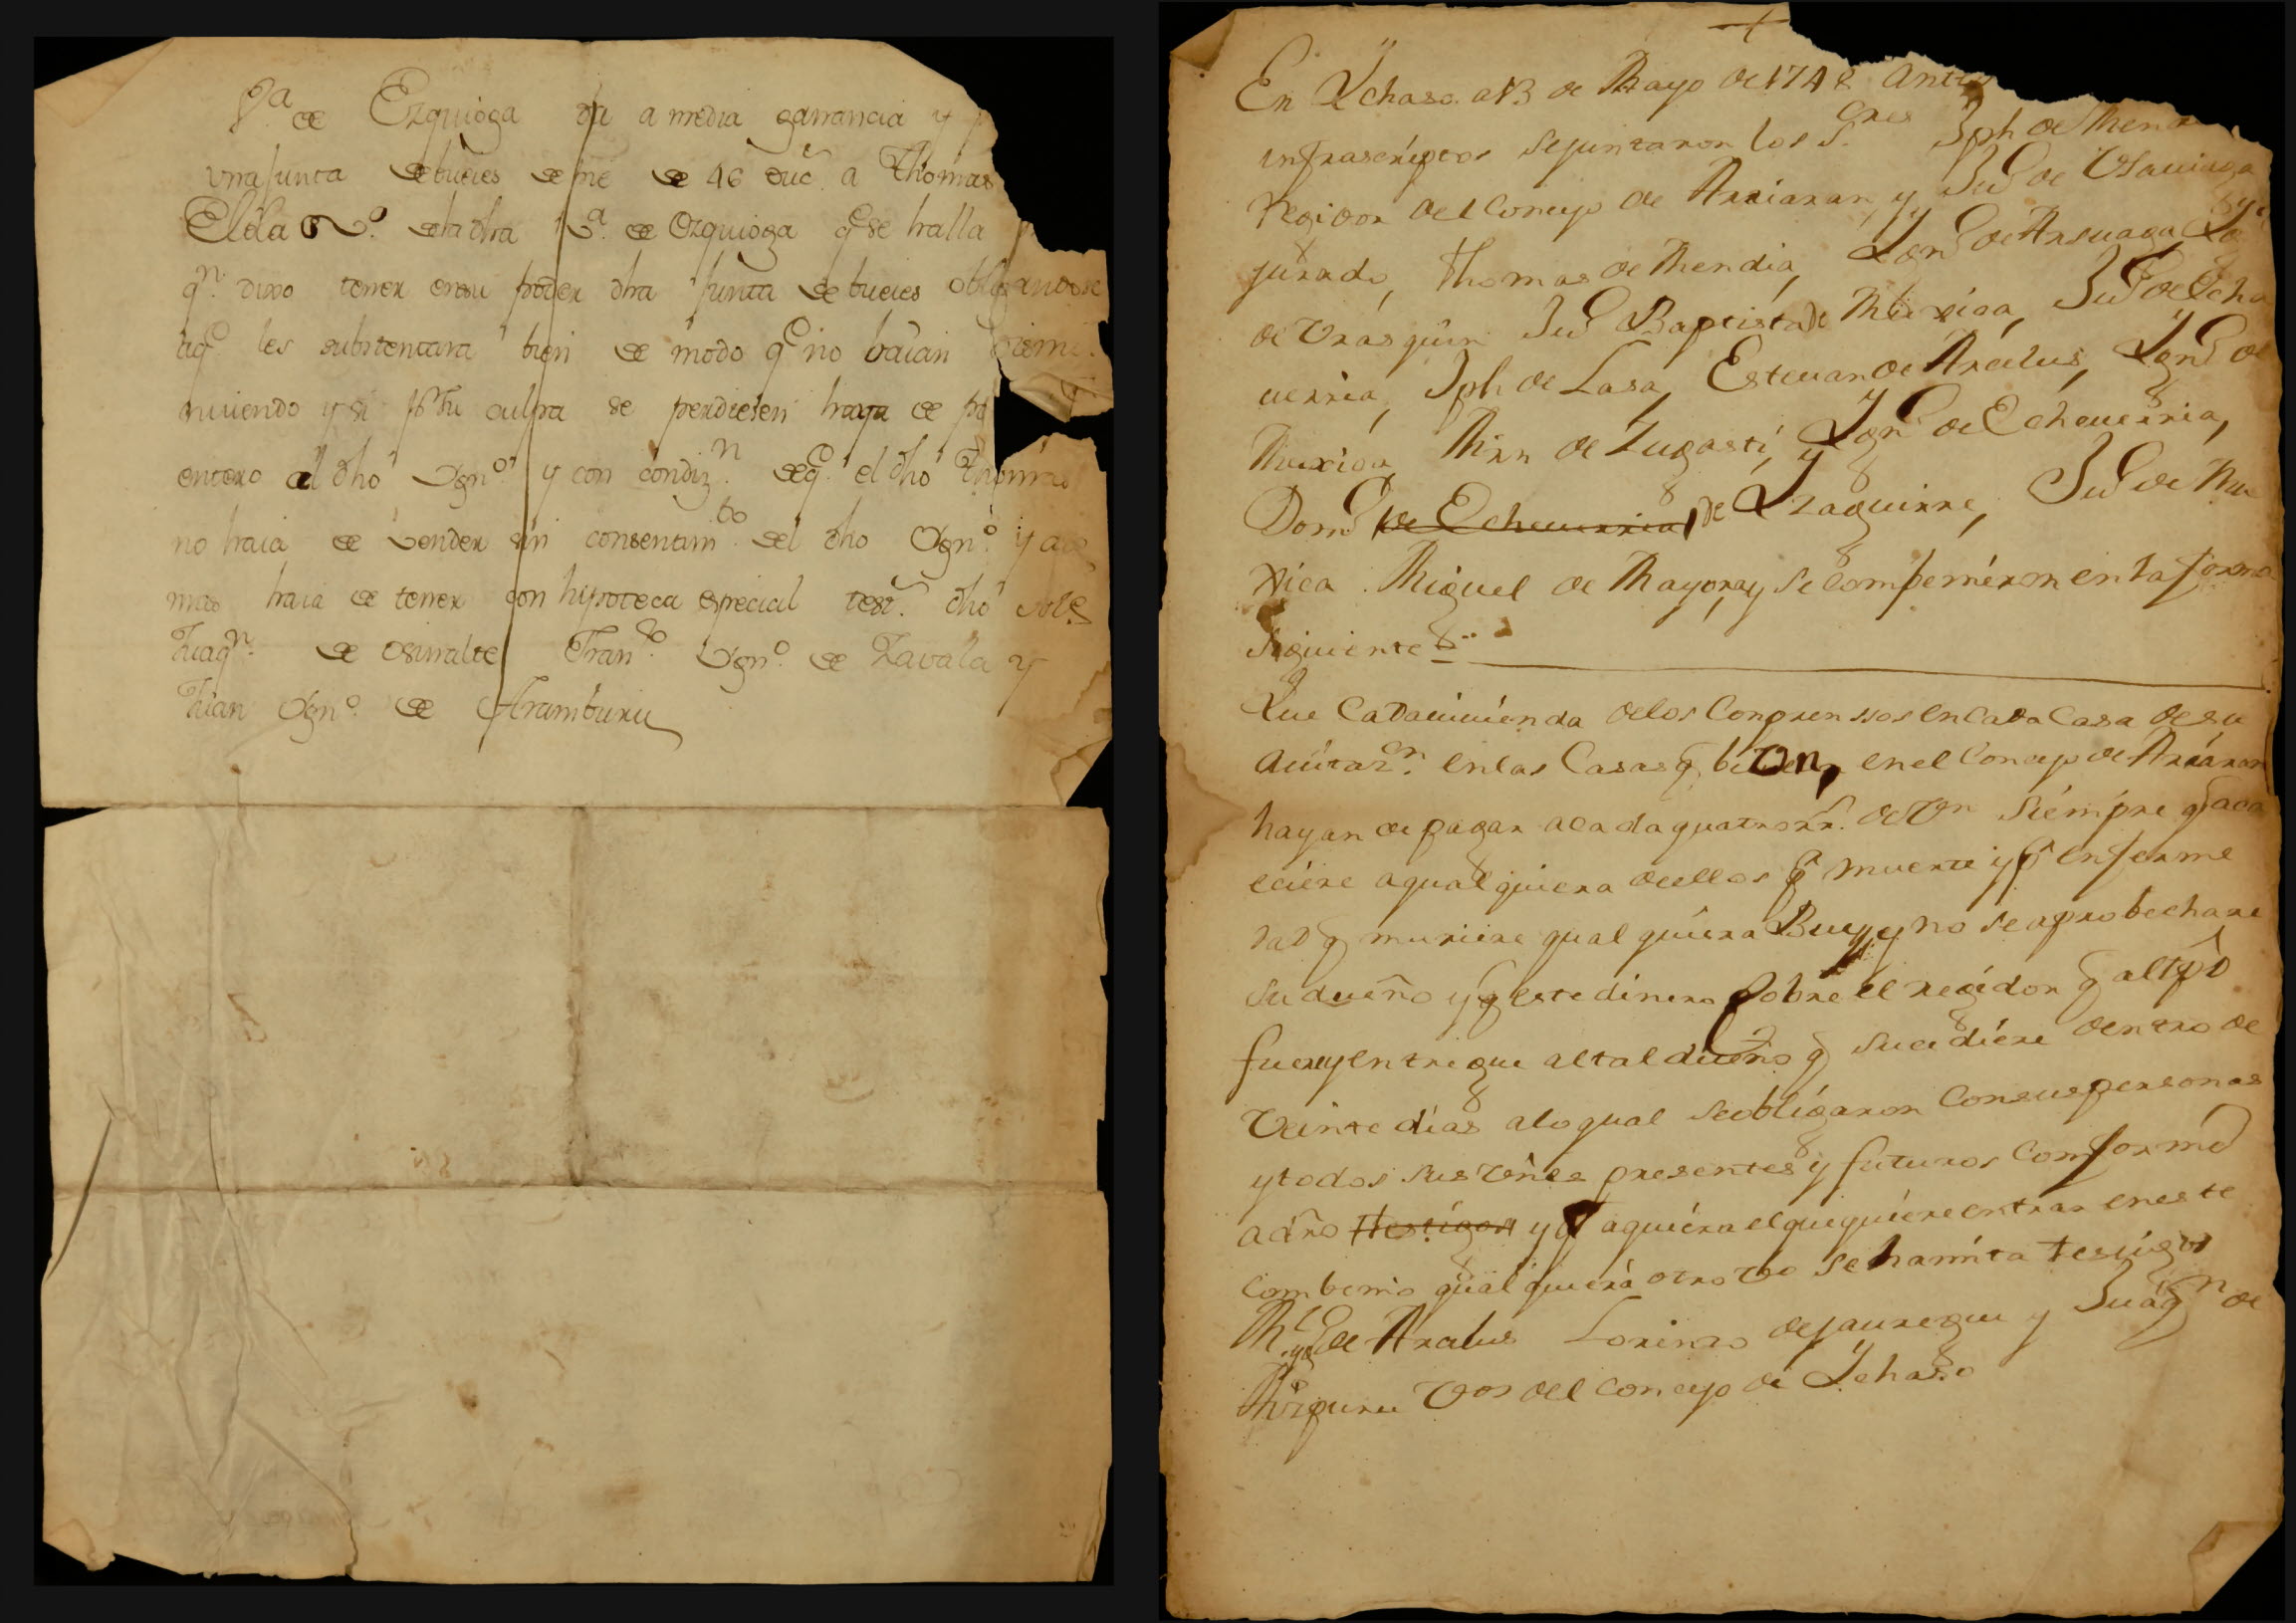 V.ª de Ezquioga da a media ganancia y
vna junta de bueies de me de 46 duc. a Thomas
Elola v.º de la dha v.ª de Ezquioga q.e se halla
q.n dixo tener en su poder dha junta de bueies obligandose
a q.e les substentara bien de modo q.e no vaian
nuiendo y si p.r su culpa se perdiesen haya de
entero al dho Ygn.º y con condiz.n de q.e el dho Thomas
no haia de vender sin consentim.to del dho Ygn.º y
mis haia de tener con hypoteca especial test.s dho
Juaq.n de Osinalde Fran.co Ygn.º de Zavala y
Juan Ygn.º de Aramburu
En Ychaso a 13 de Mayo de 1748 ante
infrascriptos se juntaron los S.res Jph de Men
Regidor del Concejo de Arriaran, y Ju.º de
jurado, Thomas de Mendia, Ygn.º de Arsuaga
de Vrasquin Ju.º Baptista de Muxica, Ju.º de Eche
uerria, Jph de Lasa, Esteuan de Aralus, Ygn.º de
Muxica, Mrn de Zugasti, Ygn.º de Echeuerria,
Dom.º de Echeuerria de Yzaguirre, Ju.º de Mu
xica Miguel de Mayora, y se compernieron en la forma
siguiente
Que cada uiuienda de los Conprenssos en cada Casa de su
auitaz.n en las Casas q.e en el Concejo de Arriaran
hayan de pagar a cada quatro rr.s de Vn siempre q aca
eciere a qualquiera de ellos p.r muerte y p.r enferme
dad q muriere qualquiera Buey, y no se aprobechare
su dueño y q este dinero cobre el regidor q al tpo
fuere y entregue al tal dueño q sucediere dentro de
veinte dias a lo qual se obligaron con sus personas
y todos sus vines presentes y futuros comforme
a dro testigos y q a quiera el que quiere entrar en este
combenio qualquiera otro vº se hamita testigos
M.l de Aralus Lorenzo de Jauregui y Juaq.n de
Murguru V.os del concejo de Ychaso